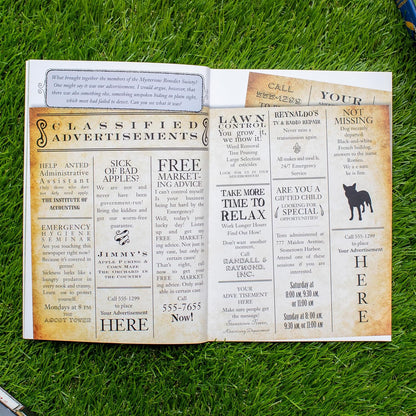 What brought together the members of the Mysterious Benedict Society?
One might say it was our advertisement. I would argue, however, that
there was also something else, something unspoken hiding in plain sight,
which most had failed to detect. Can you see what it was?
CLASSIFIED
ADVERTISEMENTS
HELP ANTED
Administrative
Assistant
Only those who dare
not fail, need apply.
THE INSTITUTE OF
ACCOUNTING
EMERGENCY
HYGIENE
SEMINAR
Are you touching this
newspaper right now?
Because it's covered in
germs!
Sickness lurks like a
hungry predator in
every nook and cranny.
Learn to protect
yourself.
Mondays at 8 p.m.
ASCOT TOWER
SICK
OF BAD
APPLES?
We are not and
never have been
government-run!
Bring the kiddies and
get our worm-free
guarantee.
JIMMY'S
APPLE PICKING
CORN MAZE
THE ORCHARD IN
THE COUNTRY
Call 555-1299
to place
Your Advertisement
HERE
FREE
MARKET-
ING ADVICE
I can't control myself!
Is your business
being hit hard by the
Emergency?
Well, today's your
lucky day! Listen
up and get my
FREE MARKET-
ING advice. Not just
in any way, but only in
certain cases!
That's right, call
now to get your
FREE MARKET-
ING advice. Only avail-
able in certain cases!
Call
555-7655
Now!
LAWN
CONTROL
You grow it,
we mow it!
Weed Removal
Tree Pruning
Large Selection
of outsides
TAKE MORE
TIME TO
RELAX
Work Longer Hours
Find Our How!
Don't want another
moment.
Call
RANDALL &
RAYMOND,
INC.
YOUR
ADVE TISEMENT
HERE
Make sure people get
the message!
REYNALDO'S
TV & RADIO REPAIR
Never miss a
transmission
again.
All makes and models.
24/7 Emergency
Service
ARE YOU A
GIFTED CHILD
LOOKING FOR
SPECIAL
OPPORTUNITIES?
Tests administered at
Third Floor
Attend one of these
sessions if you are
interested.
Saturday at
8:00 AM, 9:30 AM,
or 11:00 AM
Sunday at 8:00 AM,
9:30 AM, or 11:00 AM
CALL
555-1299
YOUR
NOT
MISSING
Dog recently
departed.
Black-and-white
French bulldog
answers to the name
Romeo.
We know
he is fine.
Call 555-1299
to place
Your Advertisement
HERE